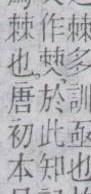 棘多訓亟也
作僰於此知
棘也唐初本